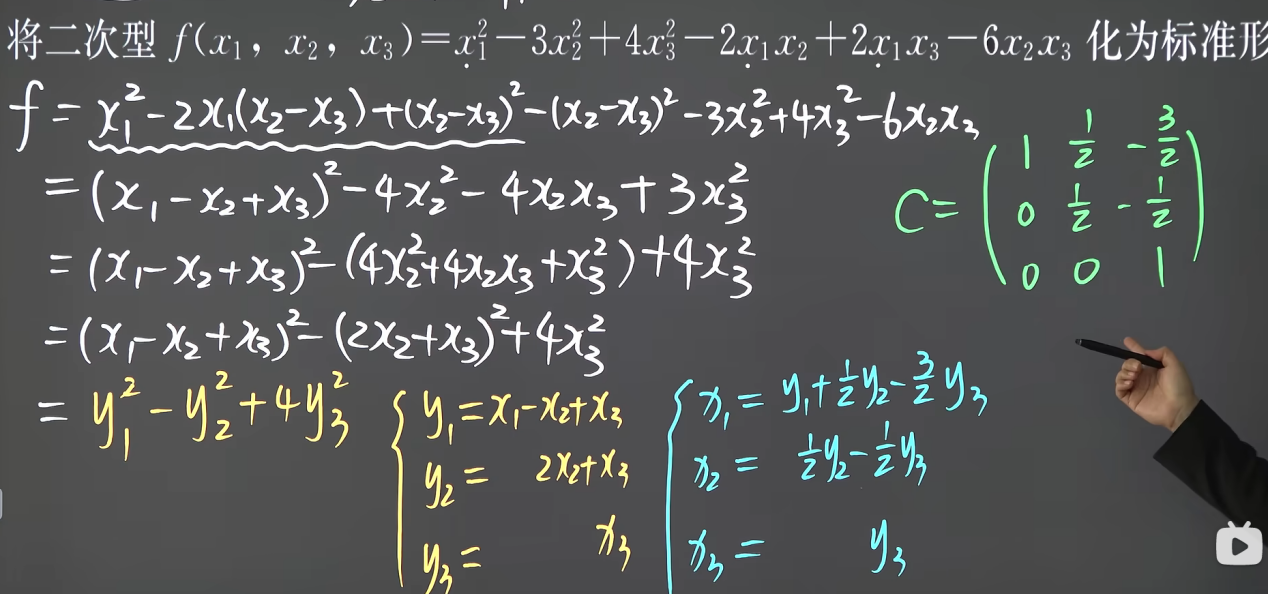 将二次型 f(x₁, x₂, x₃)=x₁²−3x₂²+4x₃²−2x₁x₂+2x₁x₃−6x₂x₃ 化为标准形
f = x₁²−2x₁(x₂−x₃)+(x₂−x₃)²−(x₂−x₃)²−3x₂²+4x₃²−6x₂x₃
=(x₁−x₂+x₃)²−4x₂²−4x₂x₃+3x₃²
=(x₁−x₂+x₃)²−(4x₂²+4x₂x₃+x₃²)+4x₃²
=(x₁−x₂+x₃)²−(2x₂+x₃)²+4x₃²
= y₁²−y₂²+4y₃²
y₁=x₁−x₂+x₃
y₂= 2x₂+x₃
y₃= x₃
x₁= y₁+½y₂−3/2 y₃
x₂= ½y₂−½y₃
x₃= y₃
C=
1 ½ −3/2
0 ½ −½
0 0 1